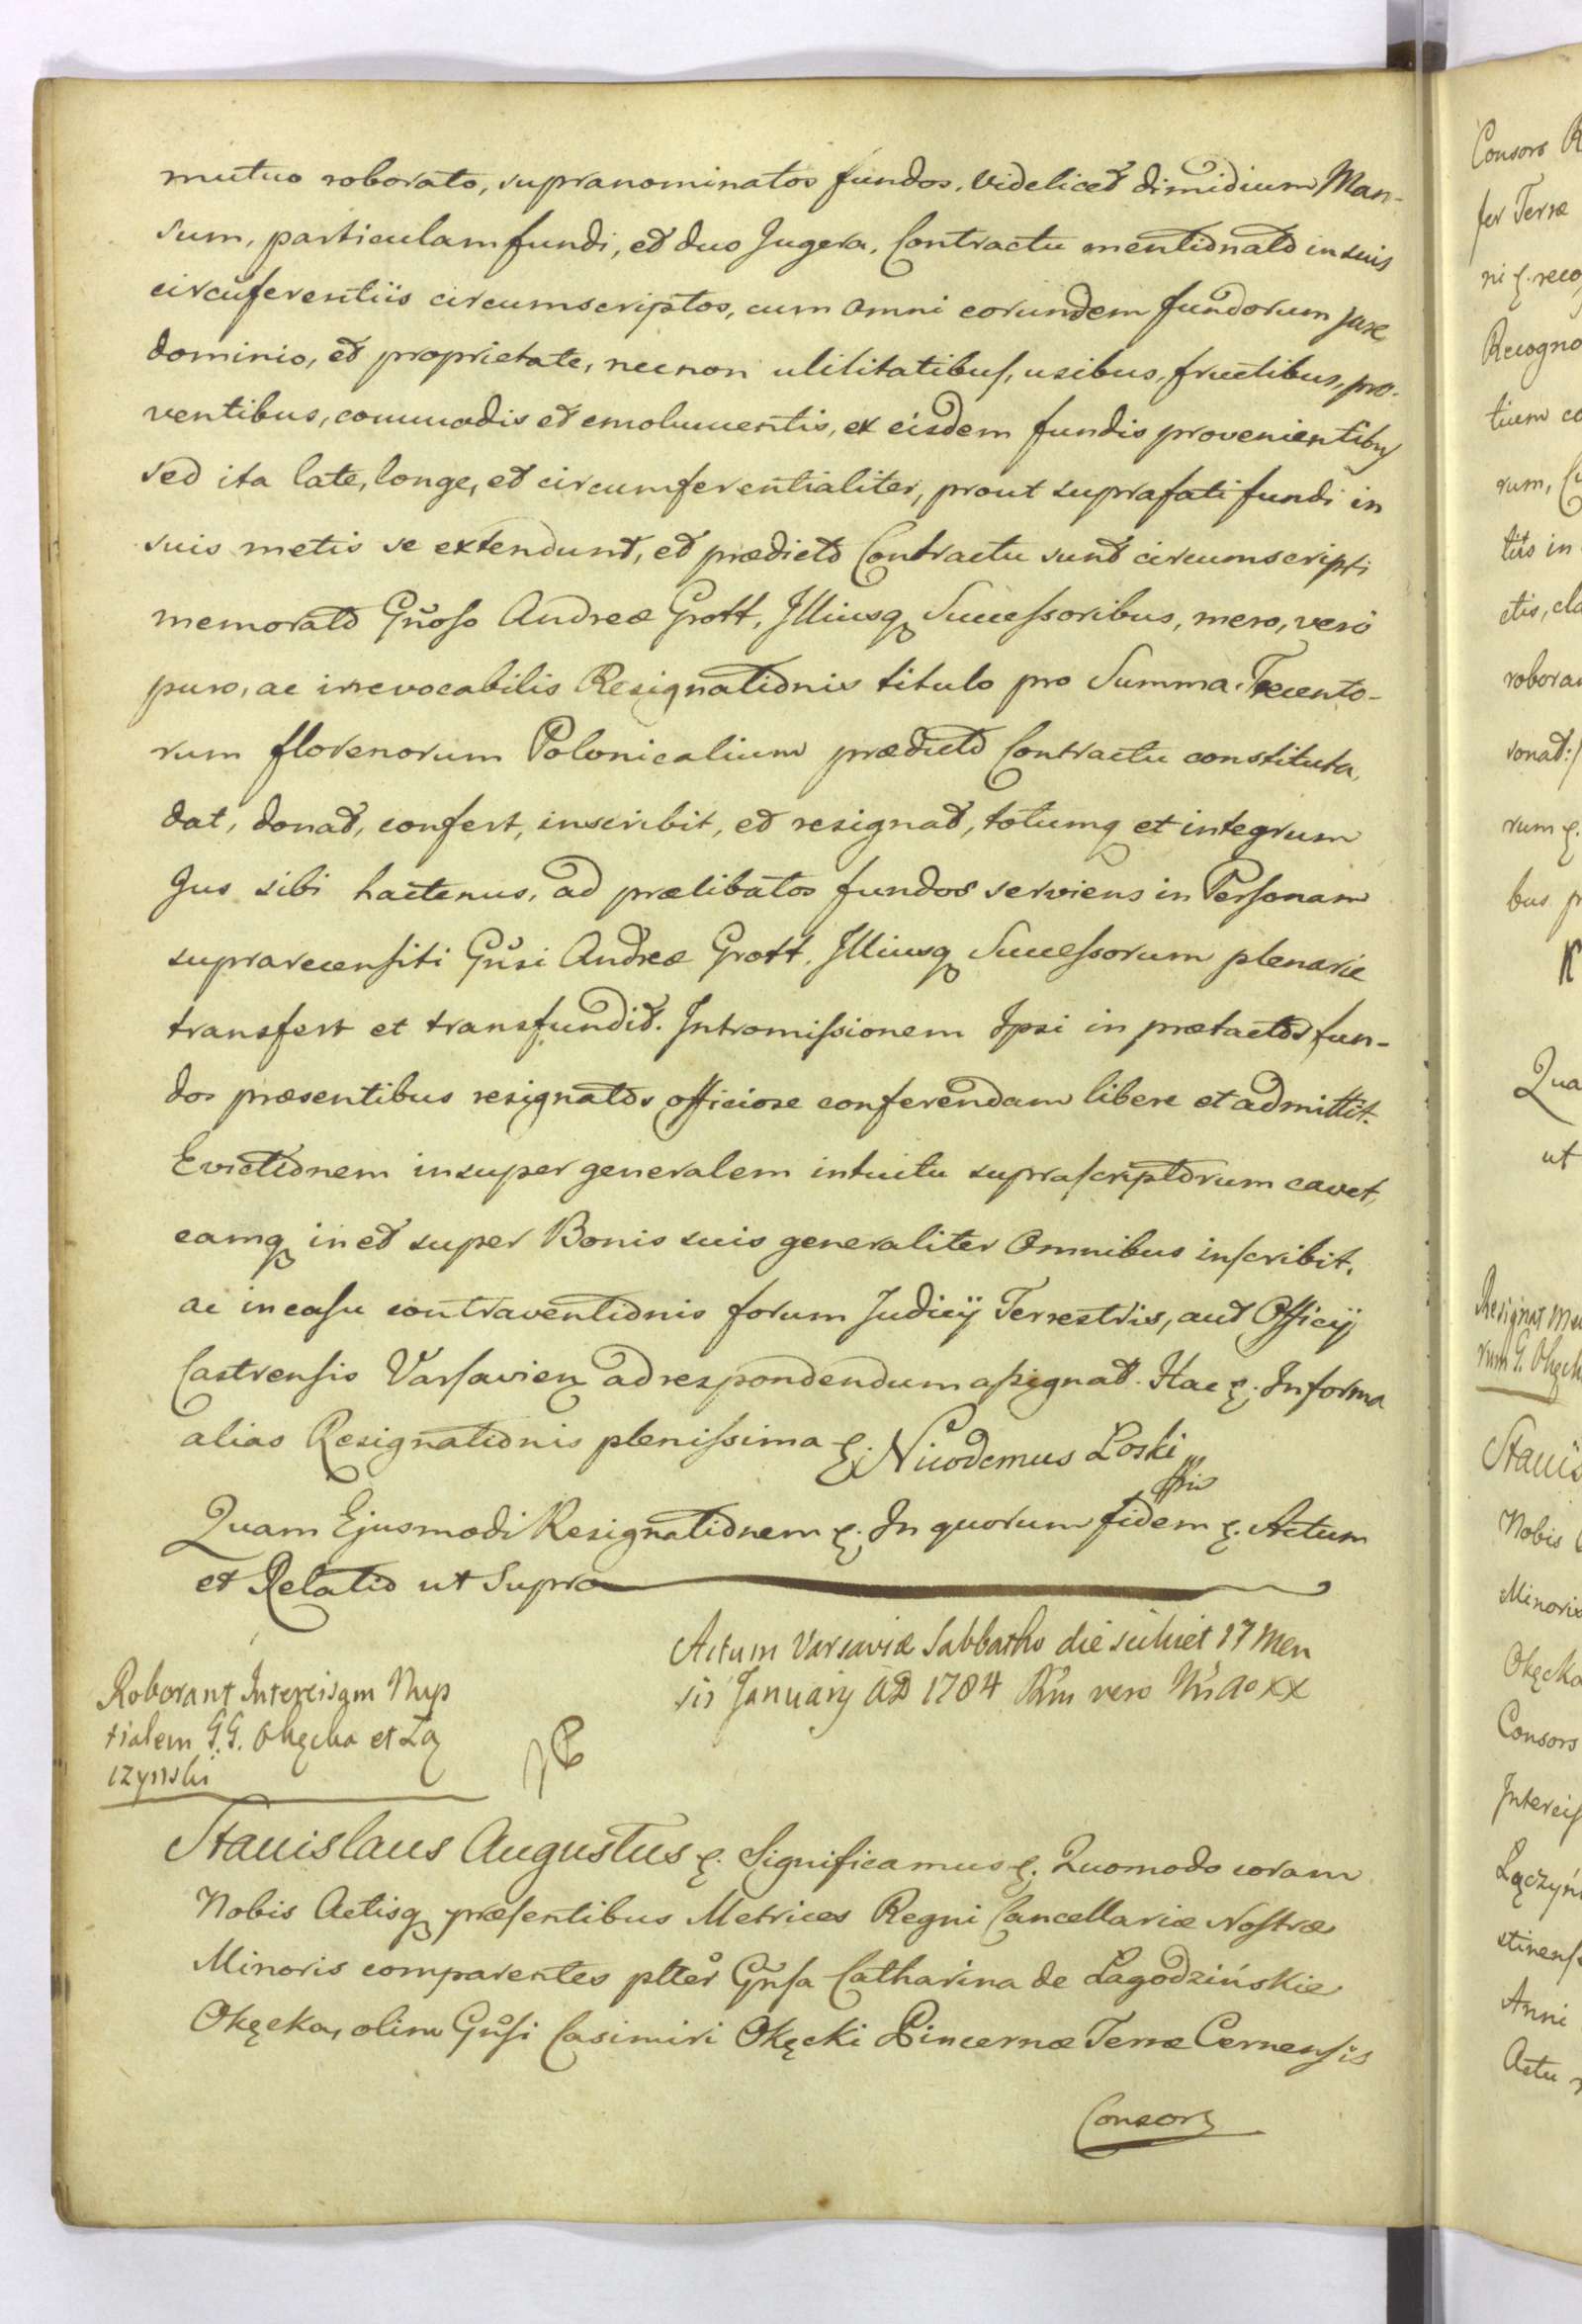 mutuo roborato, supranominatos fundos, videlicet dimidium Man-
sum, particulam fundi, et duo Jugera, Contractu mentionato in suis
circūferentiis circumscriptos, cum omni eorundem fundorum jure
dominio, et proprietate, necnon utilitatibus, usibus, fructibus, pro-
ventibus, commodis et emolumentis, ex eisdem fundis provenientibus
sed ita late, longe, et circumferentialiter, prout suprafati fundi in
suis metis se extendunt, et prædicto Contractu sunt circumscripti
memorato Gñoso Andreæ Grott, Illiusq Successoribus, mero, vero
puro, ac irrevocabilis Resignationis titulo pro Summa Trecento-
rum florenorum Polonicalium prædicto Contractu constituta,
dat, donat, confert, inscribit, et resignat, totumq et integrum
Jus sibi hactenus, ad prælibatos fundos serviens in Personam
suprarecensiti Gñsi Andreæ Grott, Illiusq Successorum plenarie
transfert et transfundit. Intromissionem Ipsi in prætactos fun-
dos præsentibus resignatos officiose conferendam libere et admittit.
Evictionem insuper generalem intuitu suprascriptorum cavet,
eamq in et super Bonis suis generaliter Omnibus inscribit,
ac in casu contraventionis forum Judicij Terrestris, aut Officij
Castrensis Varsavien ad respondendum assignat. Hac &. In forma
alias Resignationis plenissima &. Nicodemus Łoski
Quam Ejusmodi Resignationem &. In quorum fidem &. Actum
et Relatio ut Supra
Actum Varsaviæ Sabbatho die scilicet 17 Men
sis Januarij AD 1784 Rñi vero Nri Ao XX
Roborant Intercisam Nup
tialem G.G. Okęcka et Łą
czynski
Stanislaus Augustus &. Significamus &. Quomodo coram
Nobis Actisq præsentibus Metrices Regni Cancellariæ Nostræ
Minoris comparentes plter Gñsa Catharina de Lagodzińskie
Okęcka, olim Gñsi Casimiri Okęcki Pincernæ Terræ Cernensis
Consors
Consors
Terræ
Recogno
tium
rum,
tis in
robora
sonat:/
rum &.
bus
Qua
ut
Resignat
rum G. Okęck
Stanis
Nobis
Minoris
Okęcka
Consors
Intercis
Łączyń
stinens
Anni
Actu